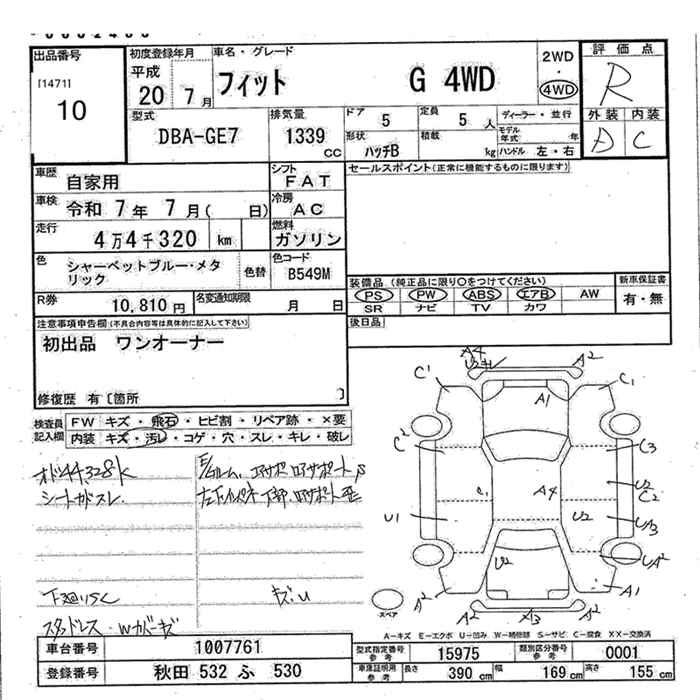 出品番号
[1471]
10
初度登録年月
平成 20 7月
車名・グレード
フィット G 4WD
2WD
・
4WD
評価点
R
外装 内装
D C
型式
DBA-GE7
排気量
1339 cc
ドア
5
定員
5 人
形状
ハッチB
積載
kg
ディーラー・並行
モデル年式 年
ハンドル 左・右
車歴
自家用
シフト
FAT
車検
令和 7年 7月( 日)
冷房
AC
走行
4万4千320 km
燃料
ガソリン
色
シャーベットブルー・メタリック
色替
色コード
B549M
R券
10,810円
名変通知期限
月 日
セールスポイント(正常に機能するものに限ります)
装備品 (純正品に限り○をつけてください)
新車保証書
PS PW ABS エアB AW
SR ナビ TV カワ
有・無
後日品
注意事項申告欄(不具合内容等は具体的に記入して下さい)
初出品 ワンオーナー
修復歴 有〔箇所 〕
検査員記入欄
FW キズ・飛石・ヒビ割・リペア跡・×要
内装 キズ・汚レ・コゲ・穴・スレ・キレ・破レ
オド44,328k
シートガスレ
下廻りSC
キズU
スタッドレス・Wカバーキズ
A4
A2
C1
A1
C1
C2
C3
C1
A4
U2
C2
U1
U2
UA3
U2
UA2
A2
A3
A2
A1
スペア
A-キズ E-エクボ U-凹み W-補修跡 S-サビ C-腐食 XX-交換済
車台番号
1007761
型式指定番号 参考
15975
類別区分番号 参考
0001
登録番号
秋田 532 ふ 530
車庫証明用 参考
長さ 390 cm
幅 169 cm
高さ 155 cm